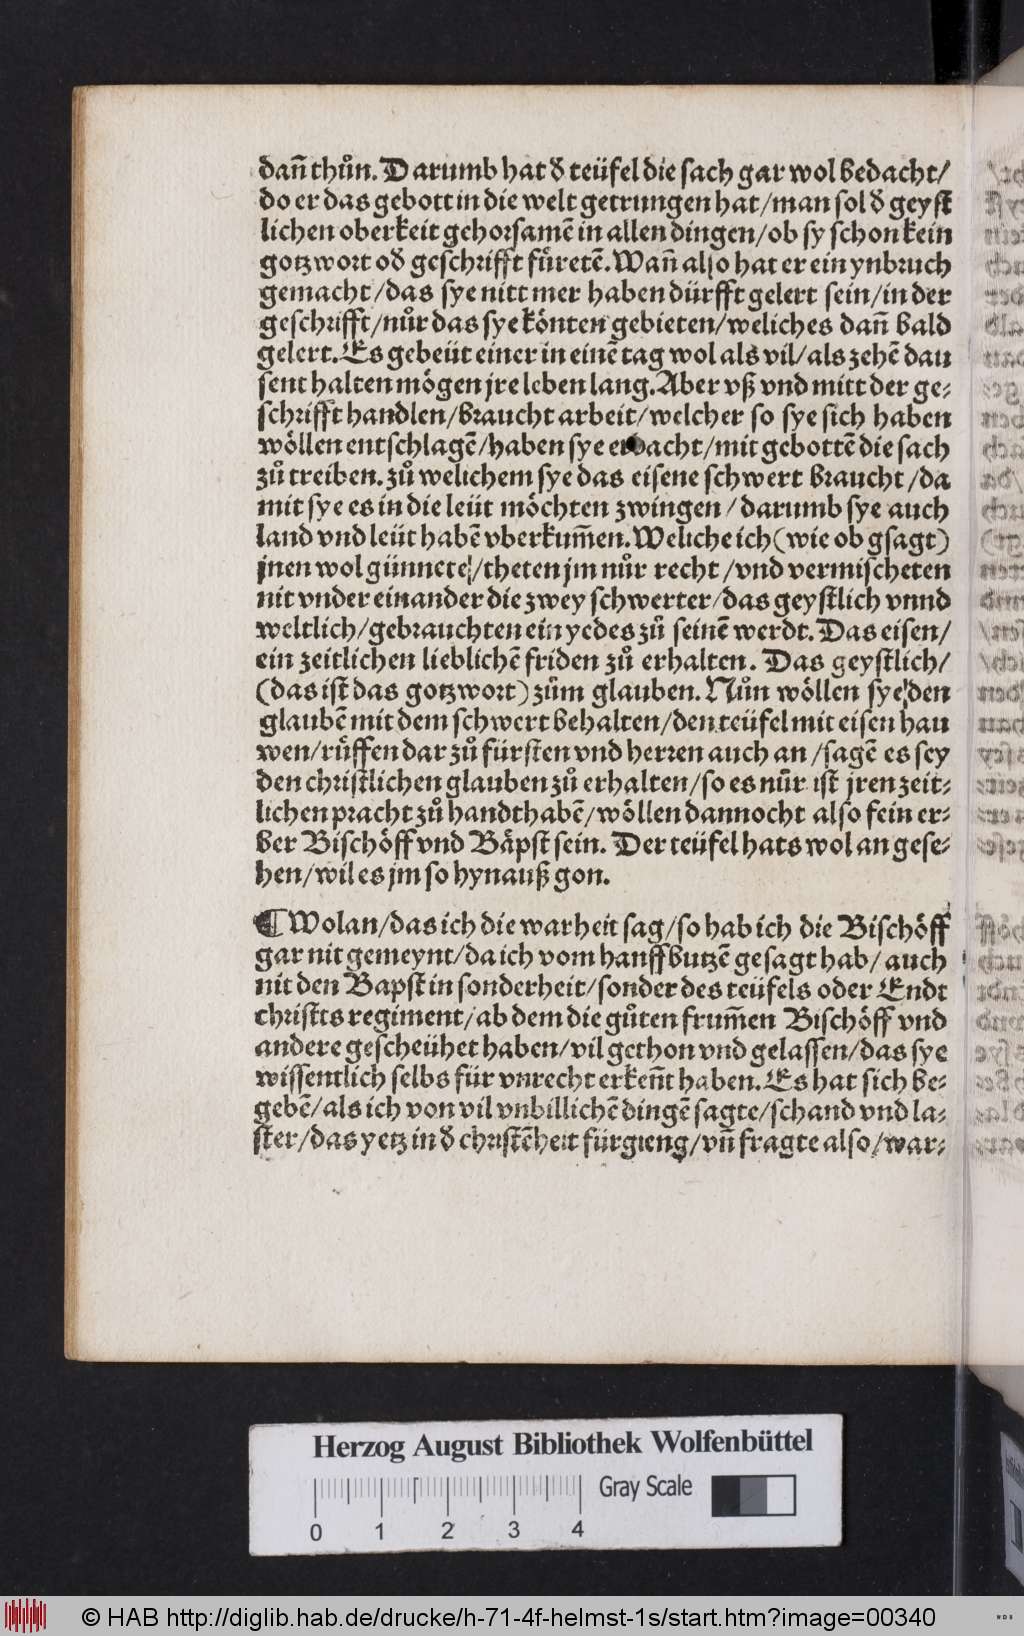 dañ thůn. Darumb hat ď teüfel die sach gar wol bedacht/
do er das gebott in die welt getrungen hat/man sol ď geyst
lichen oberkeit gehorsamē in allen dingen/ob sy schon kein
gotzwort oď geschrifft füretē. Wañ also hat er ein ynbruch
gemacht/das sye nitt mer haben dürfft gelert sein/in der
geschrifft/nůr das sye könten gebieten/weliches dañ bald
gelert. Es gebeüt einer in einē tag wol als vil/als zehē dau
sent halten mögen jre leben lang. Aber vß vnd mitt der ge-
schrifft handlen/braucht arbeit/welcher so sye sich haben
wöllen entschlagē/haben sye erdacht/mit gebottē die sach
zů treiben. zů welichem sye das eisene schwert braucht/da
mit sye es in die leüt möchten zwingen/darumb sye auch
land vnd leüt habē vberkum̄en. Weliche ich (wie ob gsagt)
jnen wol günnete/theten jm nůr recht/vnd vermischeten
nit vnder einander die zwey schwerter/das geystlich vnnd
weltlich/gebrauchten ein yedes zů seinē werdt. Das eisen/
ein zeitlichen lieblichē friden zů erhalten. Das geystlich/
(das ist das gotzwort) zům glauben. Nůn wöllen sye den
glaubē mit dem schwert behalten/den teüfel mit eisen hau
wen/růffen dar zů fürsten vnd herren auch an/sagē es sey
den christlichen glauben zů erhalten/so es nůr ist jren zeit-
lichen pracht zů handthabē/wöllen dannocht also fein er-
ber Bischöff vnd Bäpst sein. Der teüfel hats wol an gese-
hen/wil es jm so hynauß gon.
¶ Wolan/das ich die warheit sag/so hab ich die Bischöff
gar nit gemeynt/da ich vom hanffbutzē gesagt hab/auch
nit den Bapst in sonderheit/sonder des teüfels oder Endt
christs regiment/ab dem die gůten frum̄en Bischöff vnd
andere gescheühet haben/vil gethon vnd gelassen/das sye
wissentlich selbs für vnrecht erkeñt haben. Es hat sich be-
gebē/als ich von vil vnbillichē dingē sagte/schand vnd la-
ster/das yetz in ď christēheit fürgieng/vñ fragte also/war-
Herzog August Bibliothek Wolfenbüttel
Gray Scale
0 1 2 3 4
© HAB http://diglib.hab.de/drucke/h-71-4f-helmst-1s/start.htm?image=00340